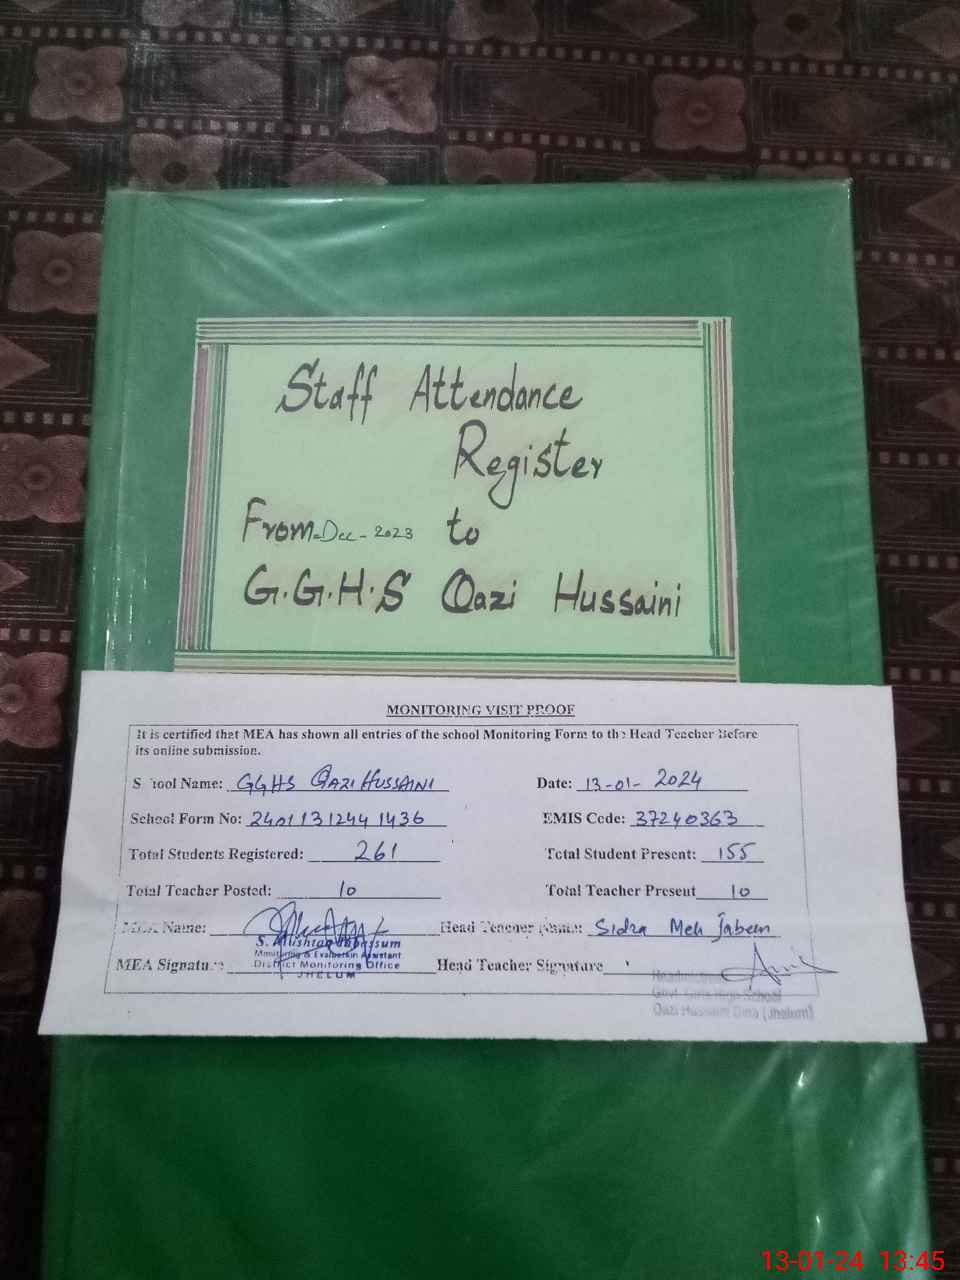 Staff Attendance
Register
From Dec - 2023 to
G.G.H.S Qazi Hussaini
MONITORING VISIT PROOF
It is certified that MEA has shown all entries of the school Monitoring Form to the Head Teacher Before
its online submission.
School Name: GGHS QAZI HUSSAINI Date: 13-01-2024
School Form No: 24011312441436 EMIS Code: 37240363
Total Students Registered: 261 Total Student Present: 155
Total Teacher Posted: 10 Total Teacher Present 10
MEA Name: Head Teacher Name: Sidra Meh Jabeen
S. Mushtaq Tabassum
Monitoring & Evaluation Assistant
MEA Signature District Monitoring Office Head Teacher Signature
JHELUM
Headmistress
Govt. Girls High School
Qazi Hussain Dina (Jhelum)
13-01-24 13:45